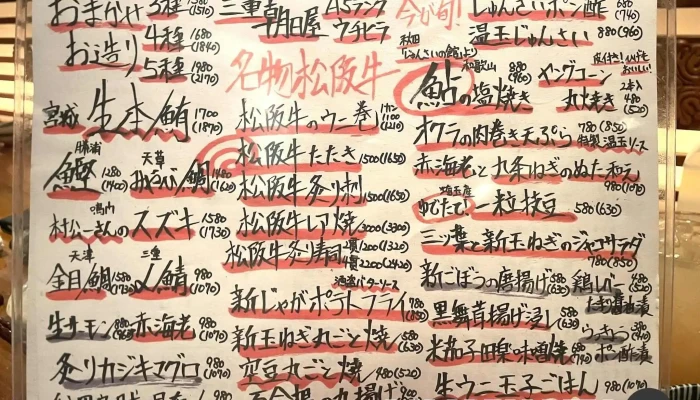 おまかせ 3種 1580
お造り 4種 1680 (1840)
5種 1980 (2170)
宮城 生本鮪 1700 (1870)
勝浦 鰹 1280 (1400)
天草 みそうぶ鯛 1480 (1620)
鳴門
村公一さんのスズキ 1580 (1730)
天津 金目鯛 1580 (1730)
三重 〆鯖 980 (1070)
生サーモン 880 (960)
赤海老 980 (1070)
炙りカジキマグロ 980 (1070)
三重 朝日屋 A5ランク ウチヒラ
名物松阪牛
松阪牛のウニ巻 1100 (1210)
松阪牛たたき 1500 (1650)
松阪牛炙り刺 1500 (1650)
松阪牛レア焼 3000 (3300)
松阪牛炙り寿司 2貫 1200 (1320)
4貫 2200 (2420)
新じゃがポテトフライ 780
新玉ねぎ丸ごと焼 580 (630)
空豆丸ごと焼 480 (520)
今が旬!
じゅんさいポン酢 680 (740)
温玉じゅんさい 880 (960)
秋田 「じゅんさいの館」より
和歌山 鮎の塩焼き 880 (960)
皮付き!ひげもおいしい!
ヤングコーン 丸焼き 2本入 480 (520)
オクラの肉巻き天ぷら 780 (850) 特製温玉ソース
赤海老と九条ねぎのぬた和え 980 (1070)
埼玉産
ゆでたて!一粒枝豆 580 (630)
三ツ葉と新玉ねぎのジャコサラダ 780 (850)
新ごぼうの唐揚げ 580 (630)
鶏レバー 480 (520)
黒舞茸揚げ浸し 580 (630)
米茄子田楽味噌焼
ポン酢漬
生ウニ玉子ごはん 980 (1070)